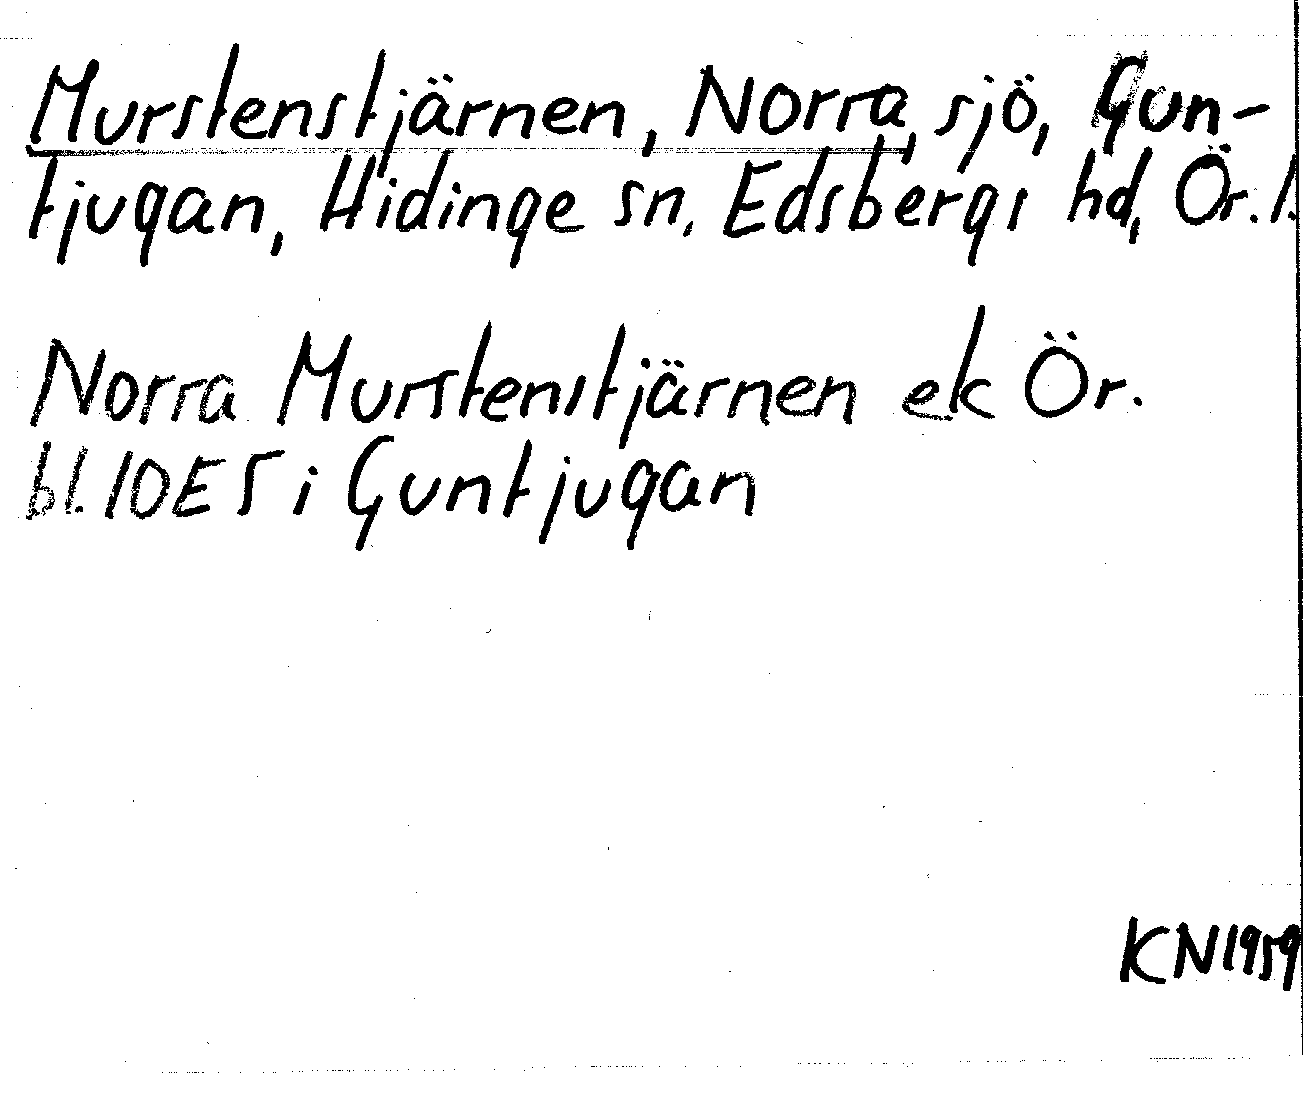 Murstenstjärnen, Norra, sjö, Gun-
tjugan, Hidinge sn, Edsbergs hd, Ör. l.
Norra Murstenstjärnen ek Ör.
bl. 10E5 i Guntjugan
KN1959